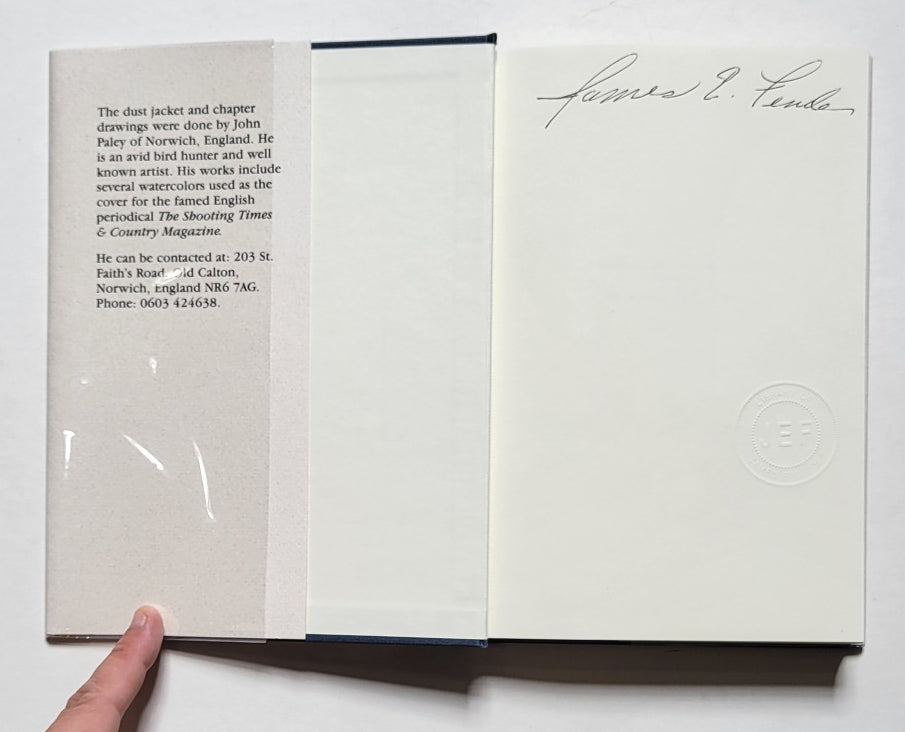 The dust jacket and chapter
drawings were done by John
Paley of Norwich, England. He
is an avid bird hunter and well
known artist. His works include
several watercolors used as the
cover for the famed English
periodical The Shooting Times
& Country Magazine.
He can be contacted at: 203 St.
Faith's Road, Old Calton,
Norwich, England NR6 7AG.
Phone: 0603 424638.
James E.
JEF